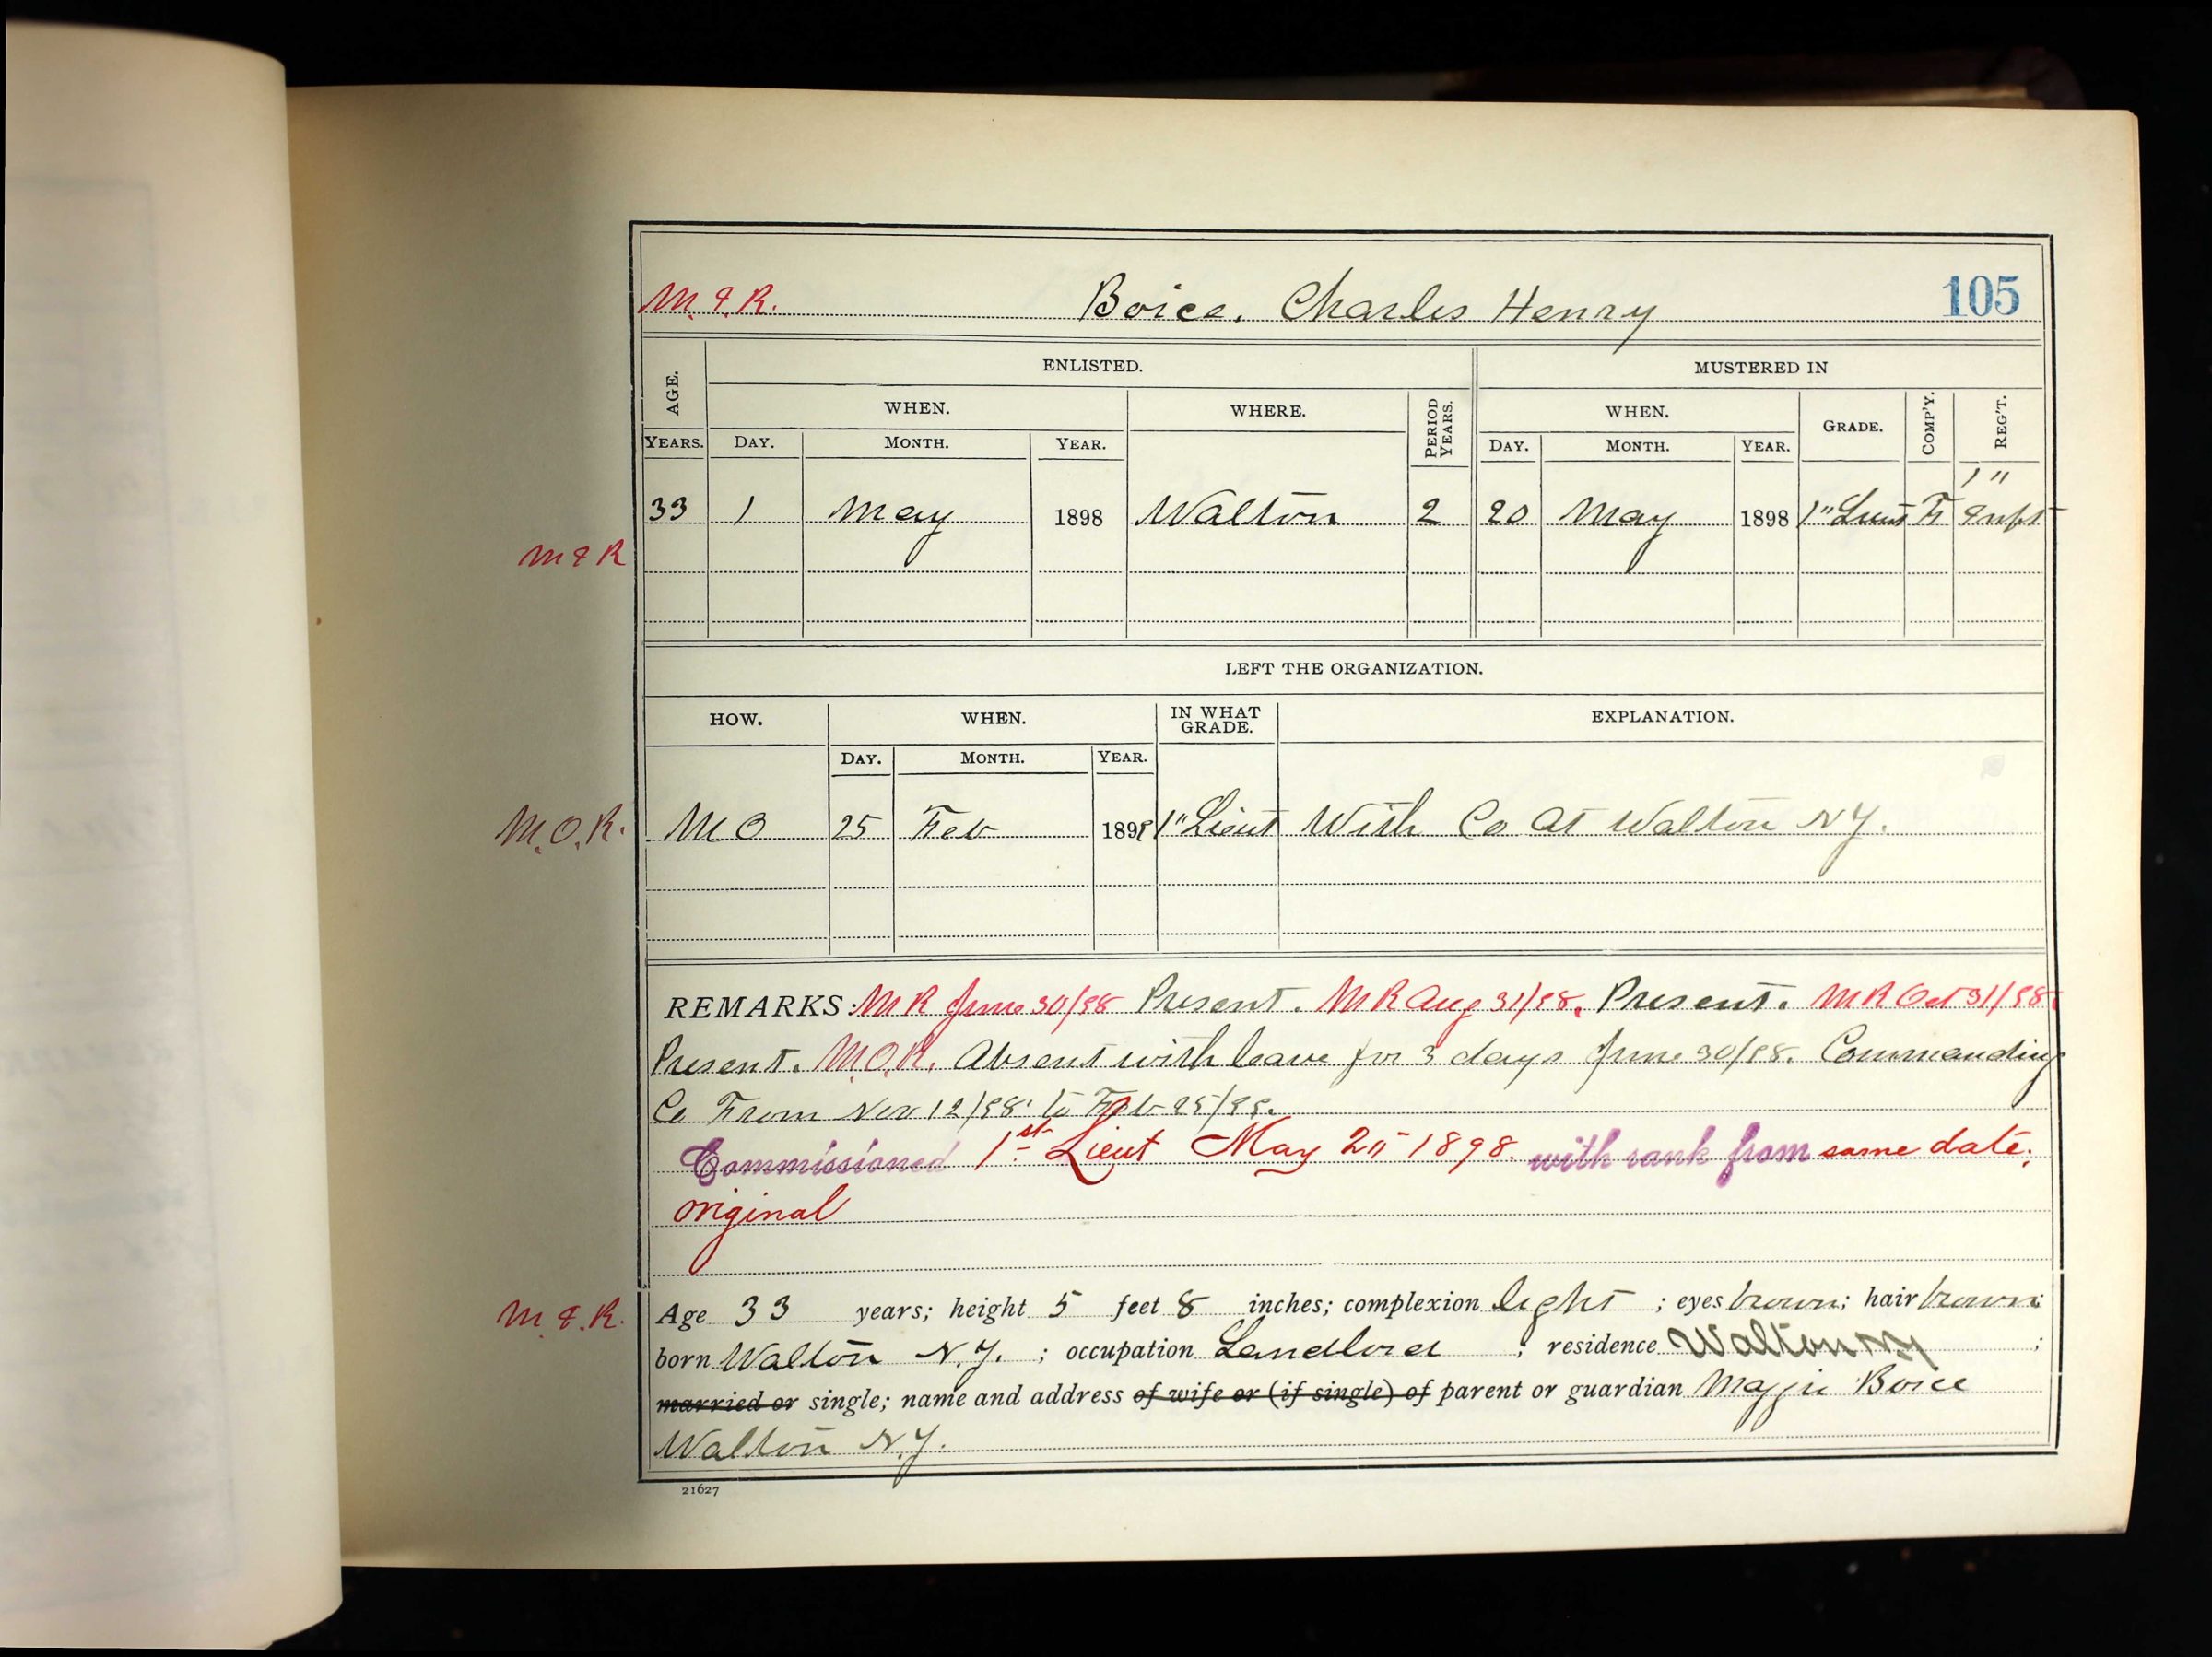 M. & R. Boice, Charles Henry 105
AGE. ENLISTED. MUSTERED IN
WHEN. WHERE. PERIOD YEARS. WHEN. GRADE. COMP'Y. REG'T.
YEARS. DAY. MONTH. YEAR. DAY. MONTH. YEAR.
33 1 May 1898 Walton 2 20 May 1898 1" Lieut F 1" Inft
M & R
LEFT THE ORGANIZATION.
HOW. WHEN. IN WHAT GRADE. EXPLANATION.
DAY. MONTH. YEAR.
M.O.R. M O 25 Feb 1899 1" Lieut With Co at Walton NY.
REMARKS: M R June 30/98 Present. M R Aug 31/98. Present. M R Oct 31/98.
Present. M.O.R. Absent with leave for 3 days June 30/98. Commanding
Co From Nov 12/98 to Feb 25/99.
Commissioned 1st Lieut May 20 1898. with rank from same date;
original
M. & R. Age 33 years; height 5 feet 8 inches; complexion light ; eyes brown; hair brown;
born Walton N.Y. ; occupation Landlord ; residence Walton NY ;
married or single; name and address of wife or (if single) of parent or guardian Maggie Boice
Walton N.Y.
21627